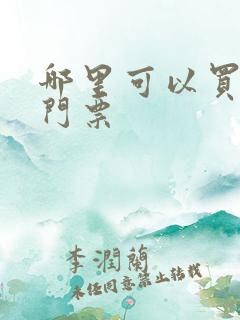 哪里可以買
門票
李潤蘭
未经同意禁止转载